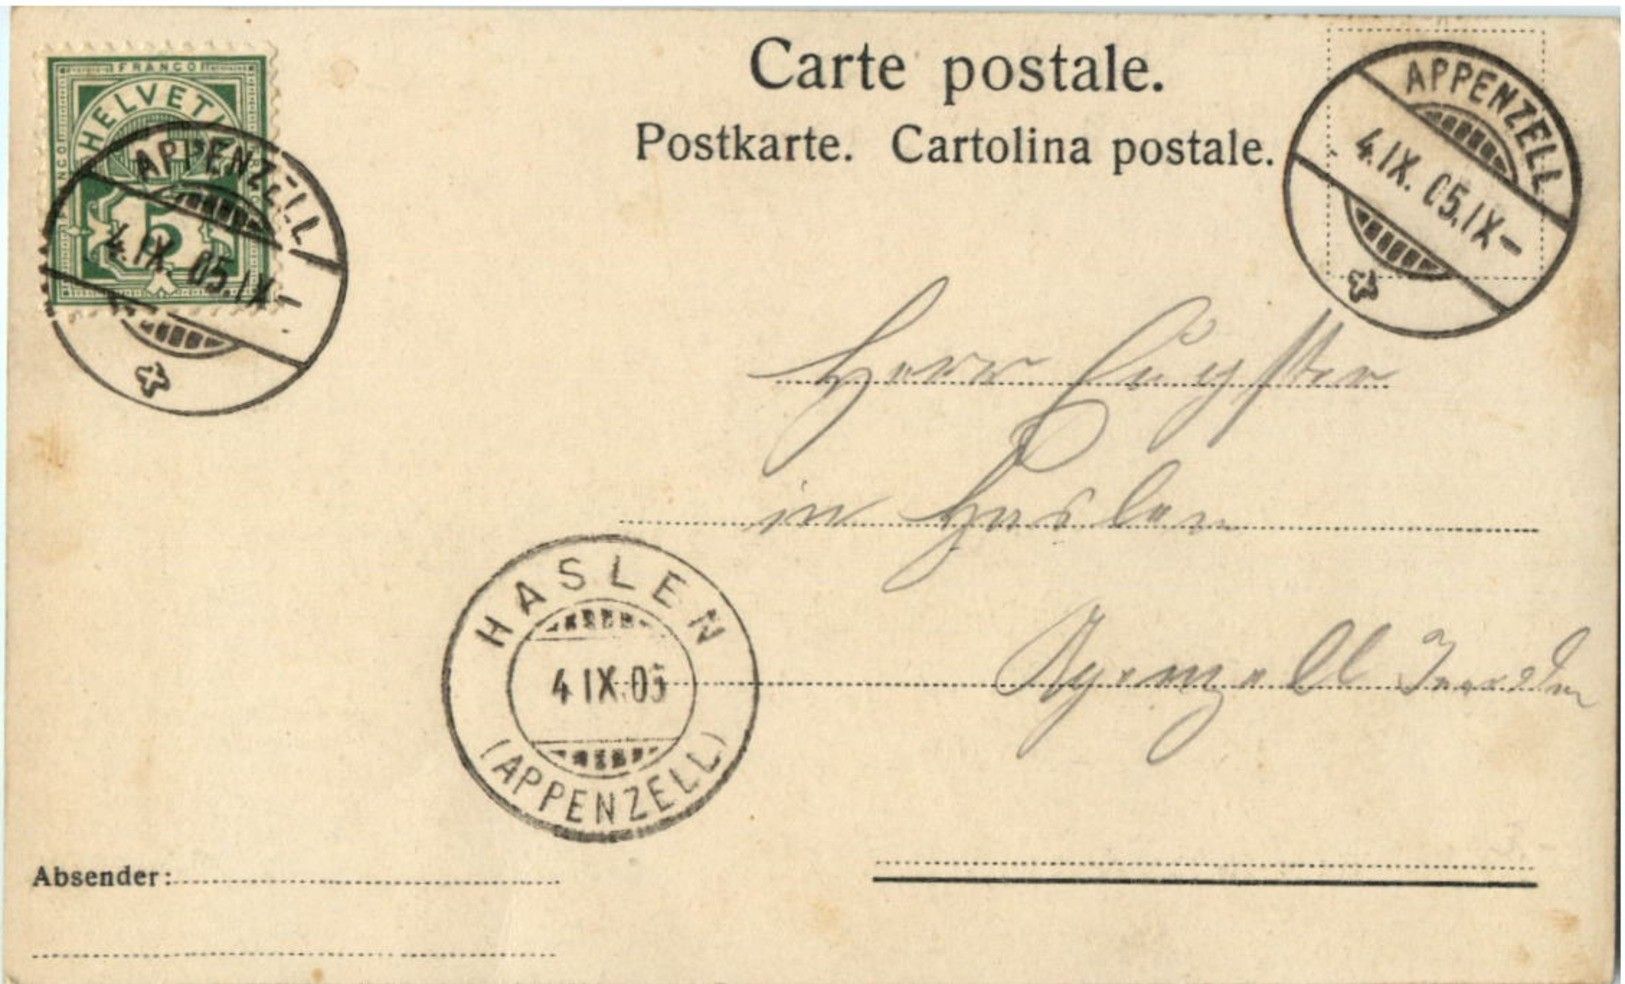 FRANCO
HELVETIA
FRANCO
5
APPENZELL
4.IX.05.IX
Carte postale.
Postkarte. Cartolina postale.
APPENZELL
4.IX.05.IX-
Herr Eugster
in Haslen
Appenzell
HASLEN
4 IX.05
(APPENZELL)
Absender: